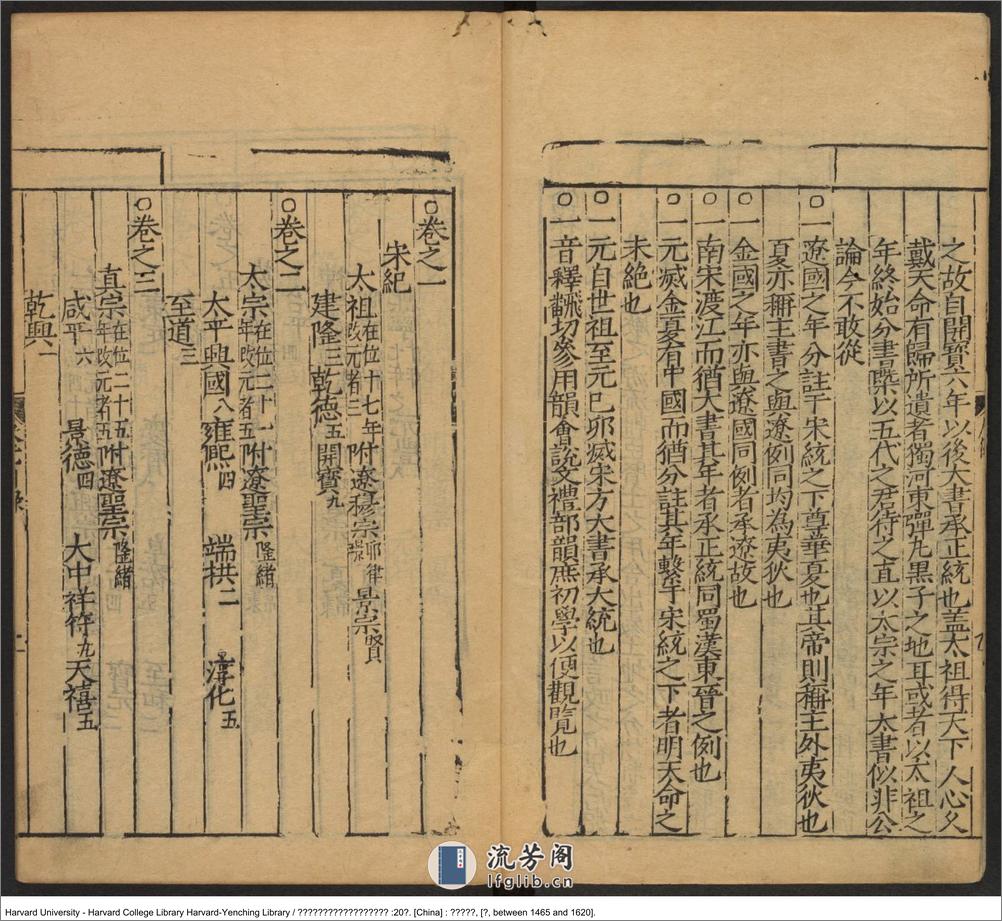 之故自開寶六年以後大書承正統也盖太祖得天下人心久
戴天命有歸所遺者獨河東彈丸黑子之地耳或者以太祖之
年終始分書槩以五代之君待之直以太宗之年大書似非公
論今不敢從
○一遼國之年分註于宋統之下尊華夏也其帝則稱主外夷狄也
夏亦稱主書之與遼例同均為夷狄也
○一金國之年亦與遼國同例者承遼故也
○一南宋渡江而猶大書其年者承正統同蜀漢東晉之例也
○一元滅金夏有中國而猶分註其年繫于宋統之下者明天命之
未絶也
○一元自世祖至元己卯滅宋方大書承大統也
○一音釋飜切參用韻會說文禮部韻庶初學以便觀覽也
○卷之一
宋紀
太祖在位十七年改元者三 附遼穆宗耶律璟 景宗賢
建隆三 乾德五 開寶九
○卷之二
太宗在位二十一年改元者五 附遼聖宗隆緒
太平興國八 雍熙四 端拱二 淳化五
至道三
○卷之三
真宗在位二十五年改元者五 附遼聖宗隆緒
咸平六 景德四 大中祥符九 天禧五
乾興一
流芳阁
lfglib.cn
Harvard University - Harvard College Library Harvard-Yenching Library / ??????????????????? :20?. [China] : ?????, [?, between 1465 and 1620].